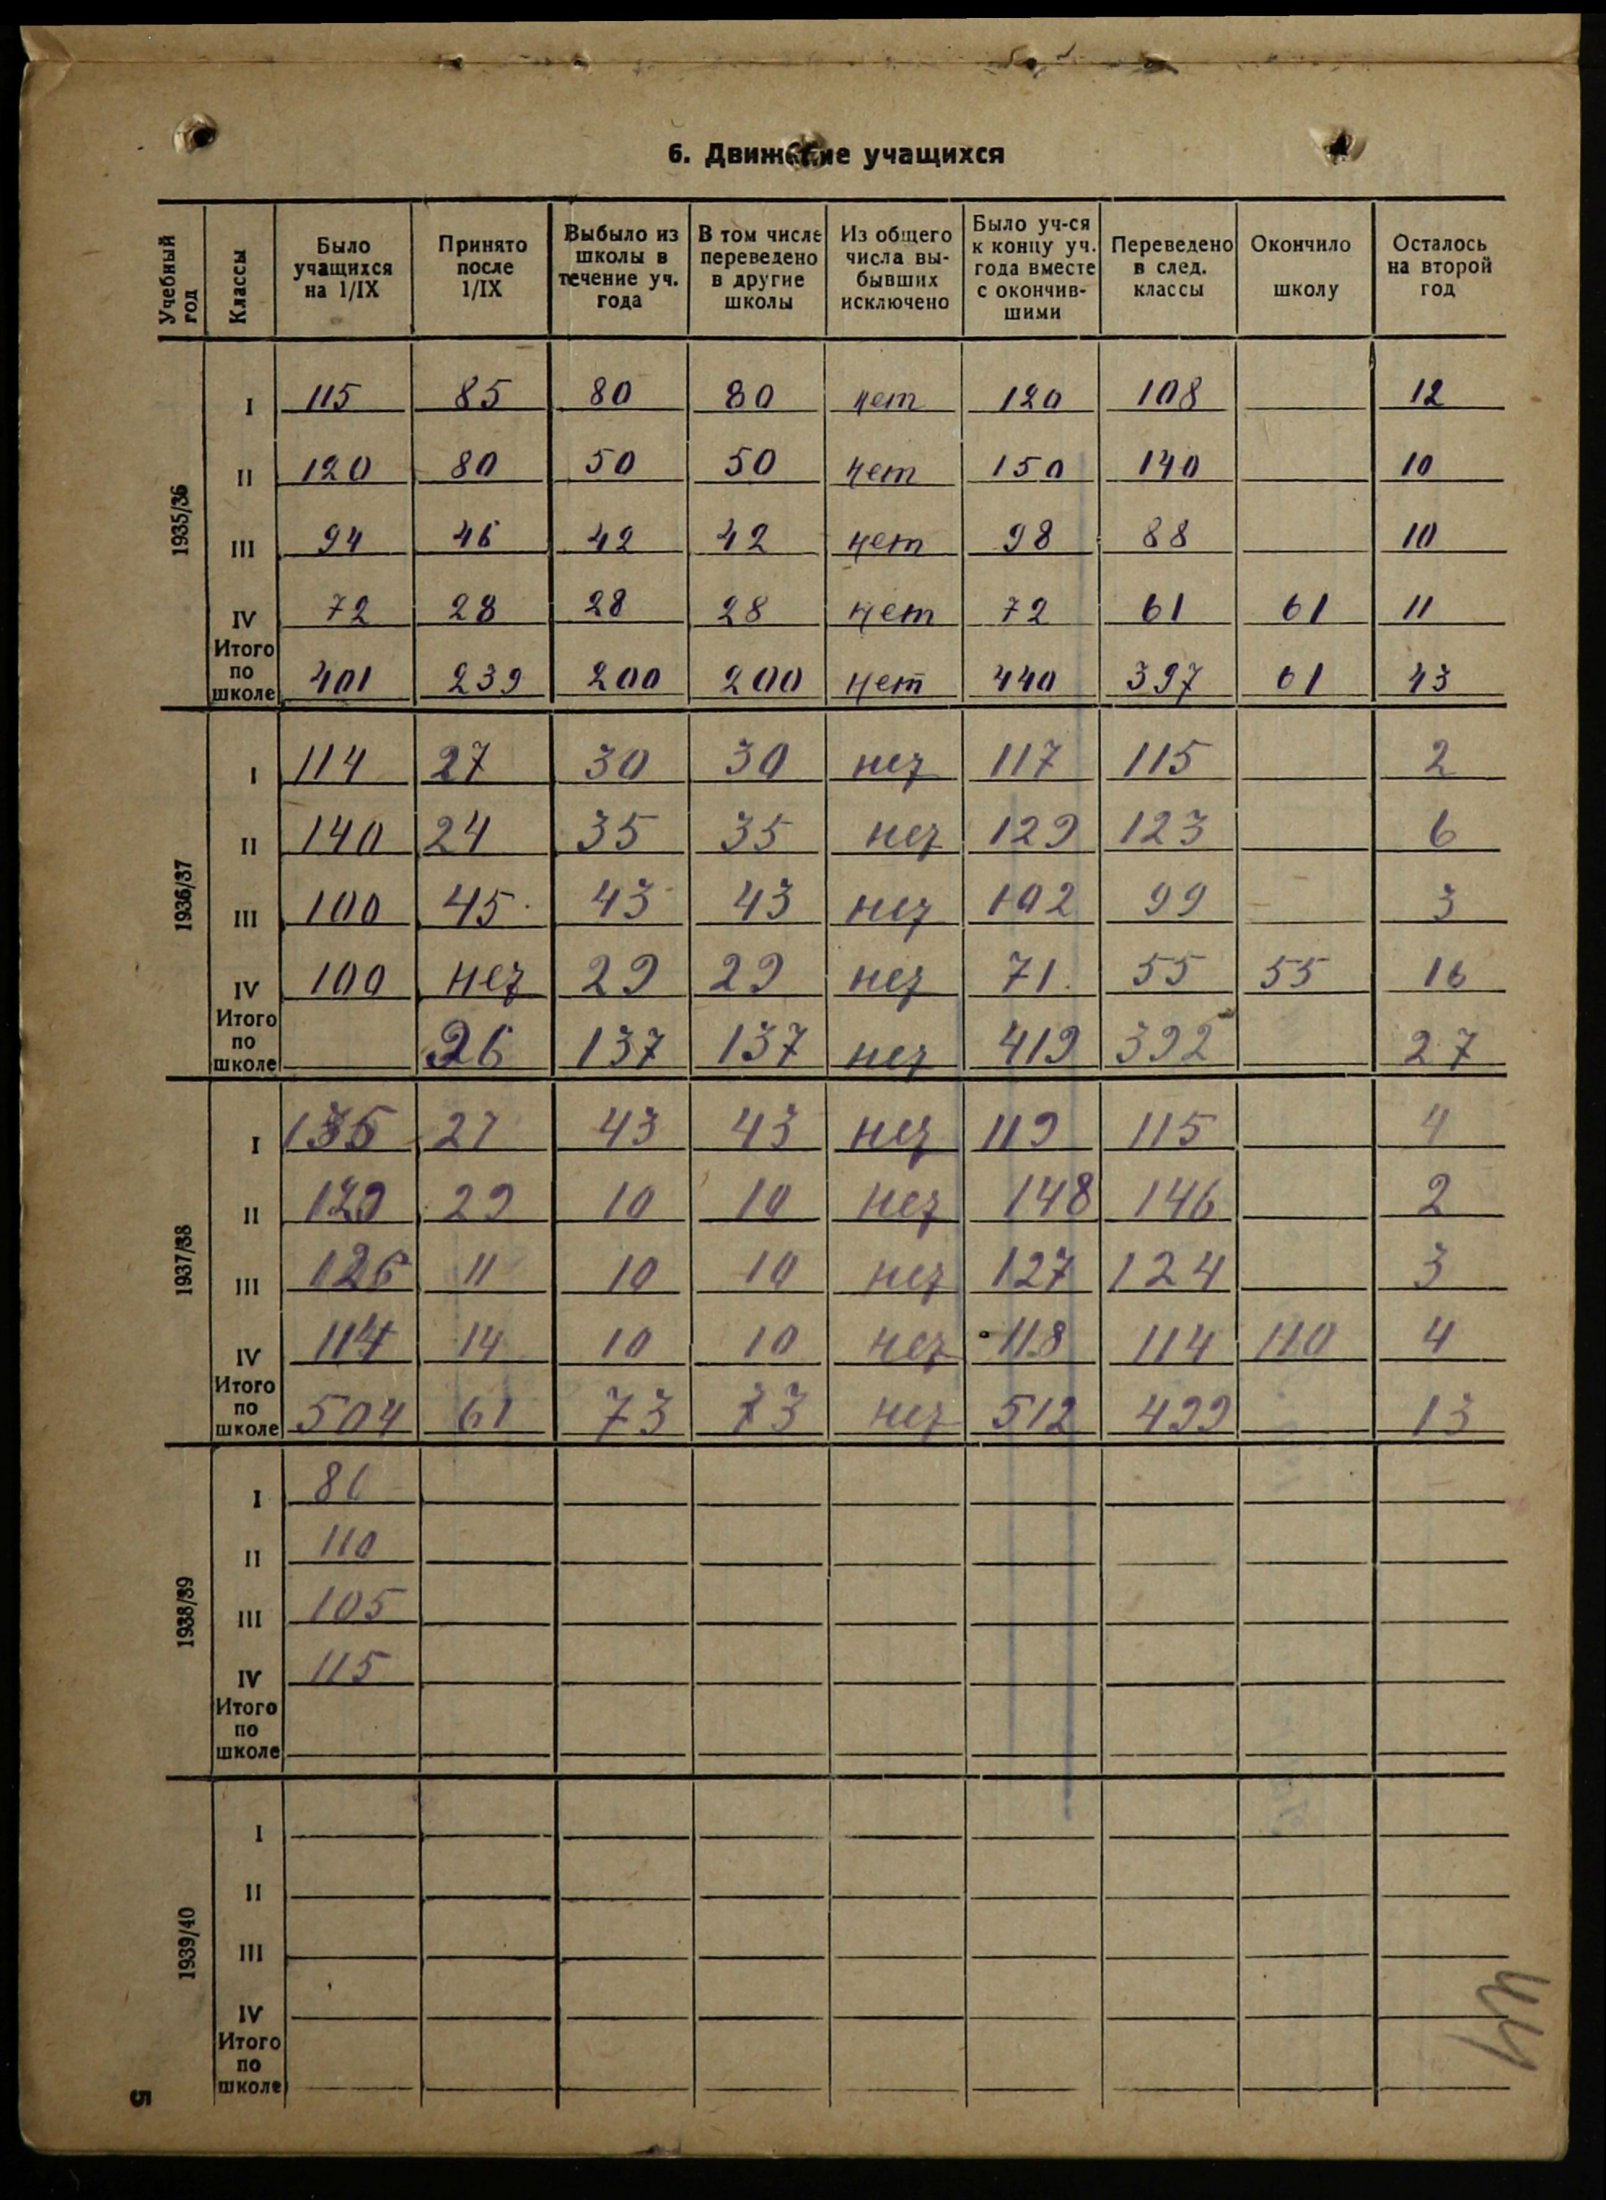 6. Движение учащихся
Учебный год | Классы | Было учащихся на 1/IX | Принято после 1/IX | Выбыло из школы в течение уч. года | В том числе переведено в другие школы | Из общего числа вы- бывших исключено | Было уч-ся к концу уч. года вместе с окончив- шими | Переведено в след. классы | Окончило школу | Осталось на второй год
1935/36
I 115 85 80 80 нет 120 108 12
II 120 80 50 50 нет 150 140 10
III 94 46 42 42 нет 98 88 10
IV 72 28 28 28 нет 72 61 61 11
Итого по школе 401 239 200 200 нет 440 397 61 43
1936/37
I 114 27 30 30 нет 117 115 2
II 140 24 35 35 нет 129 123 6
III 100 45 43 43 нет 102 99 3
IV 100 нет 29 29 нет 71 55 55 16
Итого по школе 26 137 137 нет 419 392 27
1937/38
I 135 27 43 43 нет 119 115 4
II 129 29 10 10 нет 148 146 2
III 126 11 10 10 нет 127 124 3
IV 114 14 10 10 нет 118 114 110 4
Итого по школе 504 61 73 73 нет 512 499 13
1938/39
I
II 110
III 105
IV 115
Итого по школе
1939/40
I
II
III
IV
Итого по школе
5